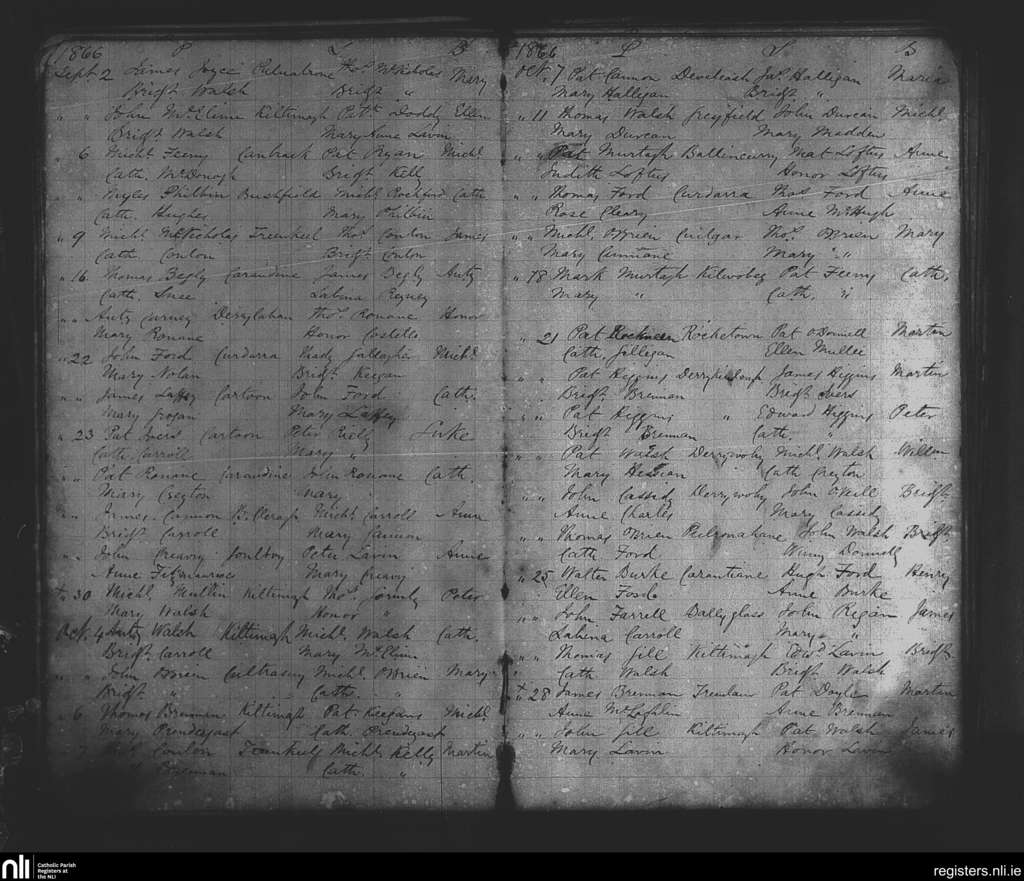 1866 P S B
Sept 2 James Joyce Thos McNicholas Mary
Bright Walsh Bright "
" " John McElime Kiltimagh Patk Doddy Ellen
Bright Walsh Mary Anne Lavin
" 6 Michl Feeny Canbrack Pat Ryan Michl
Cath. McDonogh Bright Kelly
" " Myles Philbin Bushfield Michl Rochford Cath
Cath. Hughes Mary Philbin
" 9 Michl McNicholas Treenkeel Thos Conlon James
Cath Conlon Bright Conlon
" 16 Thomas Begly Carandine James Begly Anty
Cath. Snee Labina
" " Anty Carney Derrylahan Thos Ronane Honor
Mary Ronane Honor Costello
" 22 John Ford Curdarra Gallagher Michl
Mary Nolan Bright Keegan
" " James Laffey Cartoon John Ford Cath.
Mary Grogan Mary Laffey
" 23 Pat Ivers Cartoon Peter Luke
Cath Carroll Mary "
" " Pat Ronane Carandine John Ronane Cath
Mary Creyton Mary
" " James Cannon Michl Carroll Anne
Bright Carroll Mary Cannon
" " John Creavy Peter Lavin Anne
Anne Fitzmaurice Mary Creavy
" 30 Michl Mullin Kiltimagh Thos Gormly Peter
Mary Walsh Honor "
Oct. 4 Anty Walsh Kiltimagh Michl Walsh Cath.
Bright Carroll Mary McElime
" " John Brien Cultrasny Michl O'Brien Mary
Bright " Cath. "
" 6 Thomas Brennan Kiltimagh Pat Keegans Michl
Mary Prendergast Cath Prendergast
Conlon Treenkeel Michl Kelly Martin
Cath. "
1866 P S B
Oct. 7 Pat Cannon Devleash Jas. Halligan Maria
Mary Halligan Bright "
" 11 Thomas Walsh Greyfield John Duncan Michl
Mary Duncan Mary Madden
" " Pat Murtagh Ballincurry Mat Loftus Anne
Judith Loftus Honor Loftus
" " Thomas Ford Curdarra Thos Ford Anne
Rose Cleary Anne McHugh
" " Michl. O'Brien Cuilgar Thos. O'Brien Mary
Mary Cunnane Mary "
" 18 Mark Murtagh Pat Feeny Cath.
Mary " Cath. "
" 21 Pat Rocketown Pat O'Donnell Martin
Cath. Gilligan Ellen Mullee
" " Pat Higgins James Higgins Martin
Bright Brennan Bright Ivers
" " Pat Higgins " Edward Higgins Peter
Bright Brennan Cath. "
" " Pat Walsh Derryvohy Michl. Walsh William
Mary Hessian Cath Creyton
" " John Cassidy Derryvohy John O'Neill Bright
Anne Charles Mary Cassidy
" " Thomas O'Brien John Walsh Bright
Cath Ford Winny Donnelly
" 25 Walter Burke Carantiane Hugh Ford Henry
Ellen Forde Anne Burke
" " John Farrell Ballyglass John Regan James
Labina Carroll Mary "
" " Thomas Gill Kiltimagh Edwd Lavin Bright
Cath Walsh Bright Walsh
" 28 James Brennan Treenlaur Pat Doyle Martin
Anne McLoghlin Anne Brennan
" " John Gill Kiltimagh Pat Walsh James
Mary Lavin Honor Lavin
nli Catholic Parish
Registers at
the NLI
registers.nli.ie